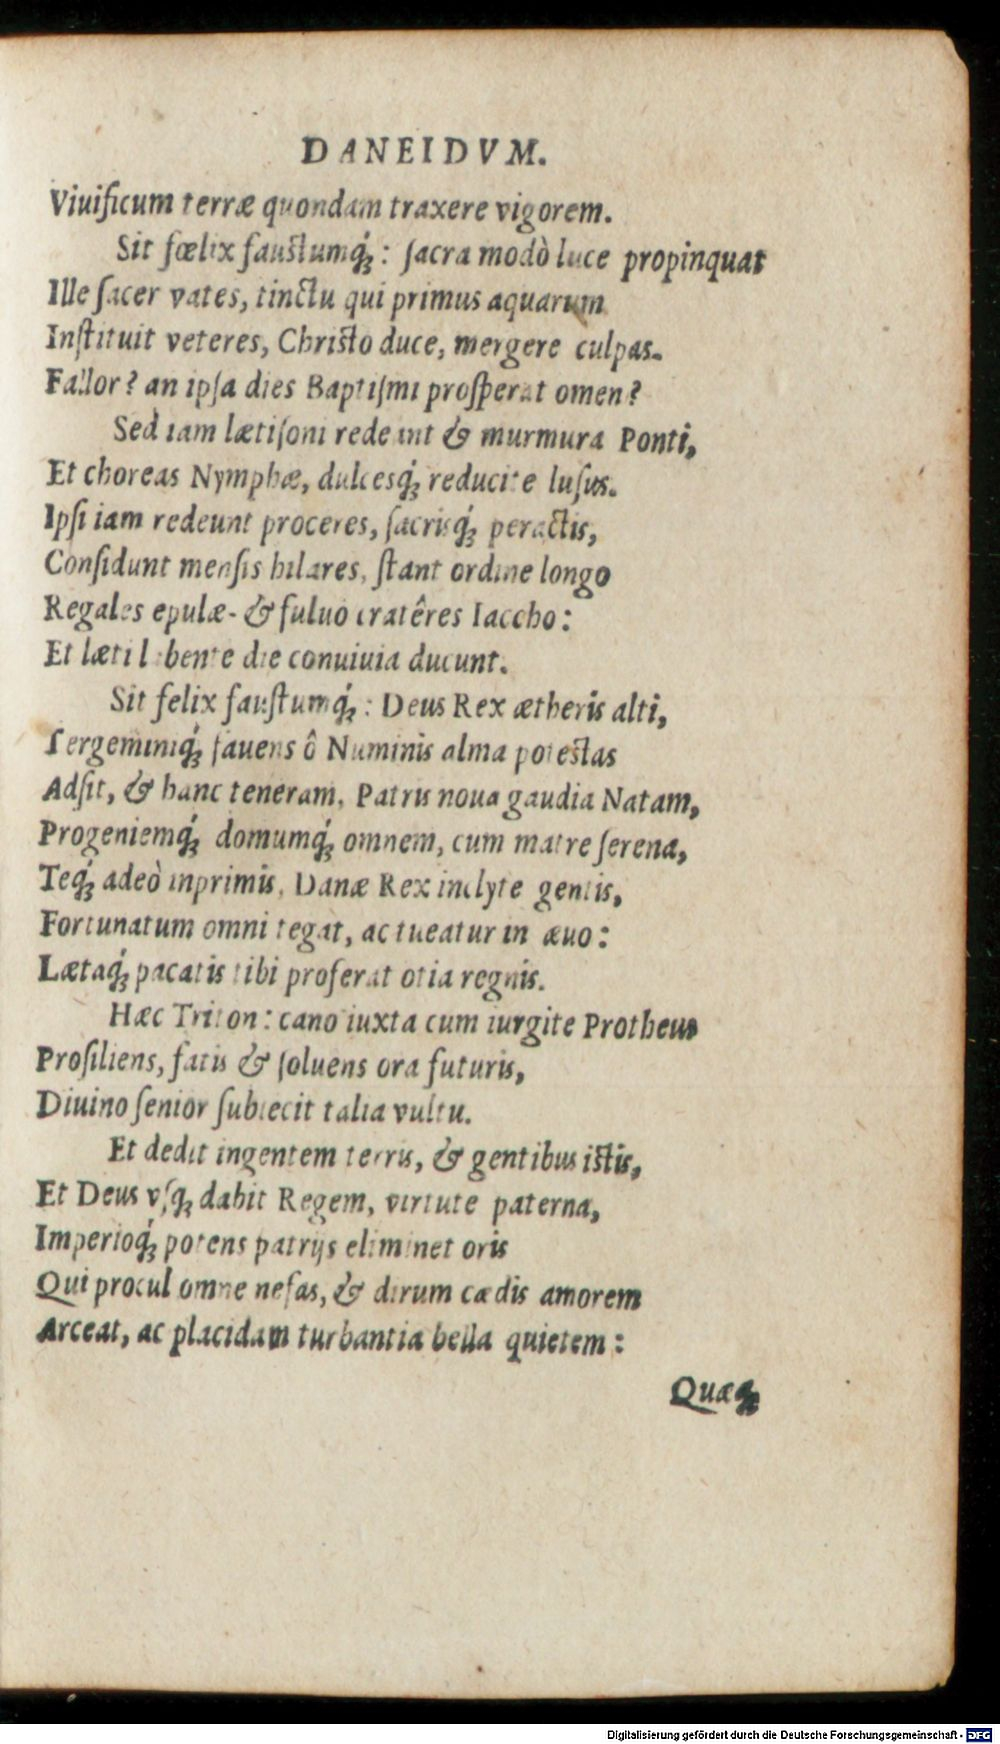 DANEIDVM.
Viuificum terræ quondam traxere vigorem.
Sit fœlix faustumq́;: sacra modò luce propinquat
Ille sacer vates, tinctu qui primus aquarum
Instituit veteres, Christo duce, mergere culpas.
Fallor? an ipsa dies Baptismi prosperat omen?
Sed iam lætisoni redeunt & murmura Ponti,
Et choreas Nymphæ, dulcesq́; reducite lusus.
Ipsi iam redeunt proceres, sacrisq́; peractis,
Considunt mensis hilares, stant ordine longo
Regales epulæ- & fuluo cratêres Iaccho:
Et læti libente die conuiuia ducunt.
Sit felix faustumq́;: Deus Rex ætheris alti,
Tergeminiq́; fauens ô Numinis alma potestas
Adsit, & hanc teneram, Patris noua gaudia Natam,
Progeniemq́; domumq́; omnem, cum matre serena,
Teq́; adeò inprimis, Danæ Rex inclyte gentis,
Fortunatum omni tegat, ac tueatur in æuo:
Lætaq́; pacatis tibi proferat otia regnis.
Hæc Triton: cano iuxta cum iurgite Protheus
Prosiliens, fatis & soluens ora futuris,
Diuino senior subiecit talia vultu.
Et dedit ingentem terris, & gentibus istis,
Et Deus vsq; dabit Regem, virtute paterna,
Imperioq́; potens patrijs eliminet oris
Qui procul omne nefas, & dirum cædis amorem
Arceat, ac placidam turbantia bella quietem:
Quæq;
Digitalisierung gefördert durch die Deutsche Forschungsgemeinschaft - DFG